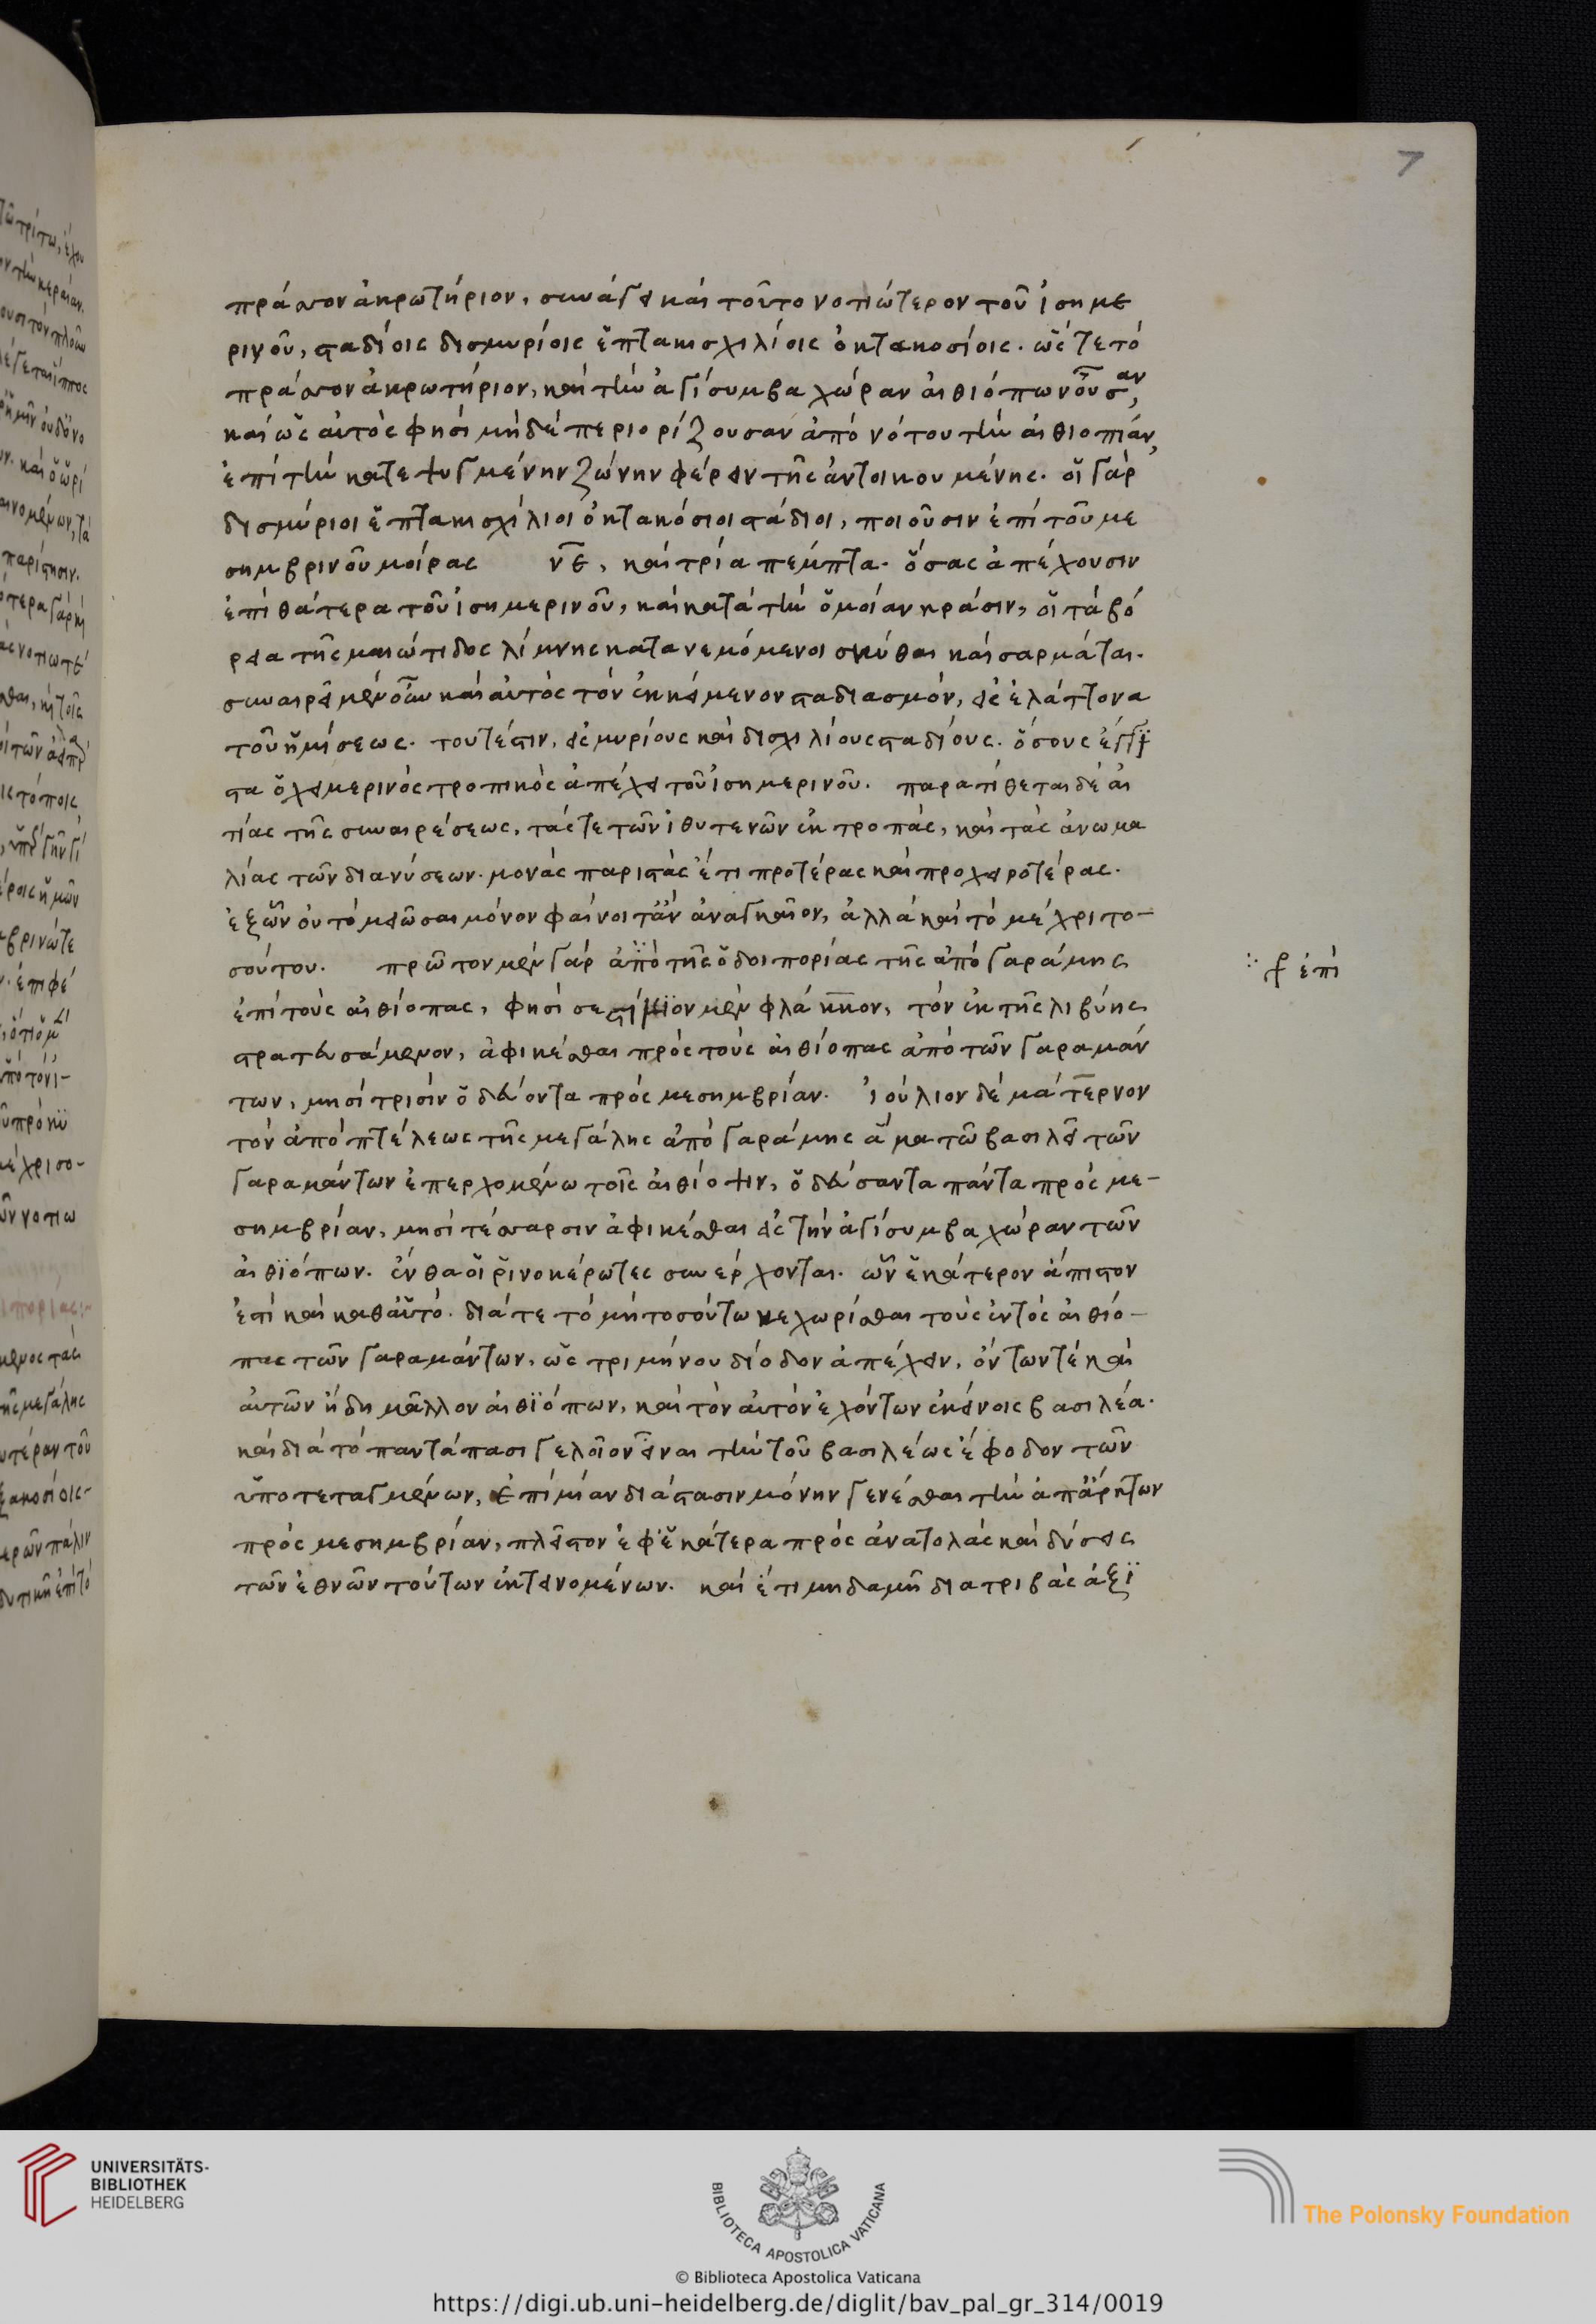 7
πράσσον ἀκρωτήριον, συνάγει καὶ τοῦτο νοτιώτερον τοῦ ἰσημε
ρινοῦ, σταδίοις δισμυρίοις ἑπτακισχιλίοις ὀκτακοσίοις. ὥς τε τὸ
πράσσον ἀκρωτήριον, καὶ τὴν ἀγίσυμβα χώραν αἰθιόπων οὖσαν,
καὶ ὡς αὐτός φησι μηδὲ περιορίζουσαν ἀπὸ νότου τὴν αἰθιοπίαν,
ἐπὶ τὴν κατεψυγμένην ζώνην φέρειν τῆς ἀντοικουμένης. οἱ γὰρ
δισμύριοι ἑπτακισχίλιοι ὀκτακόσιοι στάδιοι, ποιοῦσιν ἐπὶ τοῦ με
σημβρινοῦ μοίρας νε, καὶ τρία πέμπτα. ὅσας ἀπέχουσιν
ἐπὶ θάτερα τοῦ ἰσημερινοῦ, καὶ κατὰ τὴν ὁμοίαν κράσιν, οἱ τὰ βό
ρεια τῆς μαιώτιδος λίμνης κατανεμόμενοι σκύθαι καὶ σαρμάται.
συναιρεῖ μὲν οὖν καὶ αὐτὸς τὸν ἐκκείμενον σταδιασμόν, εἰς ἐλάττονα
τοῦ ἡμίσεως. τουτέστιν, εἰς μυρίους καὶ δισχιλίους σταδίους. ὅσους ἔγγι
στα ὁ χειμερινὸς τροπικὸς ἀπέχει τοῦ ἰσημερινοῦ. παρατίθεται δὲ αἰ
τίας τῆς συναιρέσεως, τάς τε τῶν ἰθυτενῶν ἐκτροπὰς, καὶ τὰς ἀνωμα
λίας τῶν διανύσεων. μονὰς παριστὰς ἔτι προτέρας καὶ προχειροτέρας.
ἐξ ὧν οὐ τὸ μειῶσαι μόνον φαίνοιτ ἂν ἀναγκαῖον, ἀλλὰ καὶ τὸ μέχρι το-
σούτου. πρῶτον μὲν γὰρ ἀπὸ τῆς ὁδοιπορίας τῆς ἀπὸ γαράμης
ἐπὶ τοὺς αἰθίοπας, φησὶ σεπτίμιον μὲν φλάκκον, τὸν ἐκ τῆς λιβύης
στρατευσάμενον, ἀφικέσθαι πρὸς τοὺς αἰθίοπας ἀπὸ τῶν γαραμάν
των, μησὶ τρισὶν ὁδεύοντα πρὸς μεσημβρίαν. ἰούλιον δὲ μάτερνον
τὸν ἀπὸ πτέλεως τῆς μεγάλης ἀπὸ γαράμης ἅμα τῶ βασιλεῖ τῶν
γαραμάντων ἐπερχομένω τοῖς αἰθίοψιν, ὁδεύσαντα πάντα πρὸς με-
σημβρίαν, μησὶ τέσσαρσιν ἀφικέσθαι εἰς τὴν ἀγίσυμβα χώραν τῶν
αἰθϊόπων. ἔνθα οἱ ῥινοκέρωτες συνέρχονται. ὧν ἑκάτερον ἄπιστον
ἐστὶ καὶ καθ αὑτό. διά τε τὸ μὴ τοσούτω κεχωρίσθαι τοὺς ἐντὸς αἰθίο-
πας τῶν γαραμάντων, ὡς τριμήνου δίοδον ἀπέχειν, ὄντων τέ καὶ
αὐτῶν ἤδη μᾶλλον αἰθϊόπων, καὶ τὸν αὐτὸν ἐχόντων ἐκείνοις βασιλέα.
καὶ διὰ τὸ παντάπασι γελοῖον εἶναι τὴν τοῦ βασιλέως ἔφοδον τῶν
ὑποτεταγμένων, ἐπὶ μίαν διάστασιν μόνην γενέσθαι τὴν ἀπ ἄρκτων
πρὸς μεσημβρίαν, πλεῖστον ἐφ ἑκάτερα πρὸς ἀνατολὰς καὶ δύσεις
τῶν ἐθνῶν τούτων ἐκτεινομένων. καὶ ἔτι μηδαμῆ διατριβὰς ἀξϊ
ἐπὶ
UNIVERSITÄTS-
BIBLIOTHEK
HEIDELBERG
BIBLIOTECA APOSTOLICA VATICANA
© Biblioteca Apostolica Vaticana
The Polonsky Foundation
https://digi.ub.uni-heidelberg.de/diglit/bav_pal_gr_314/0019